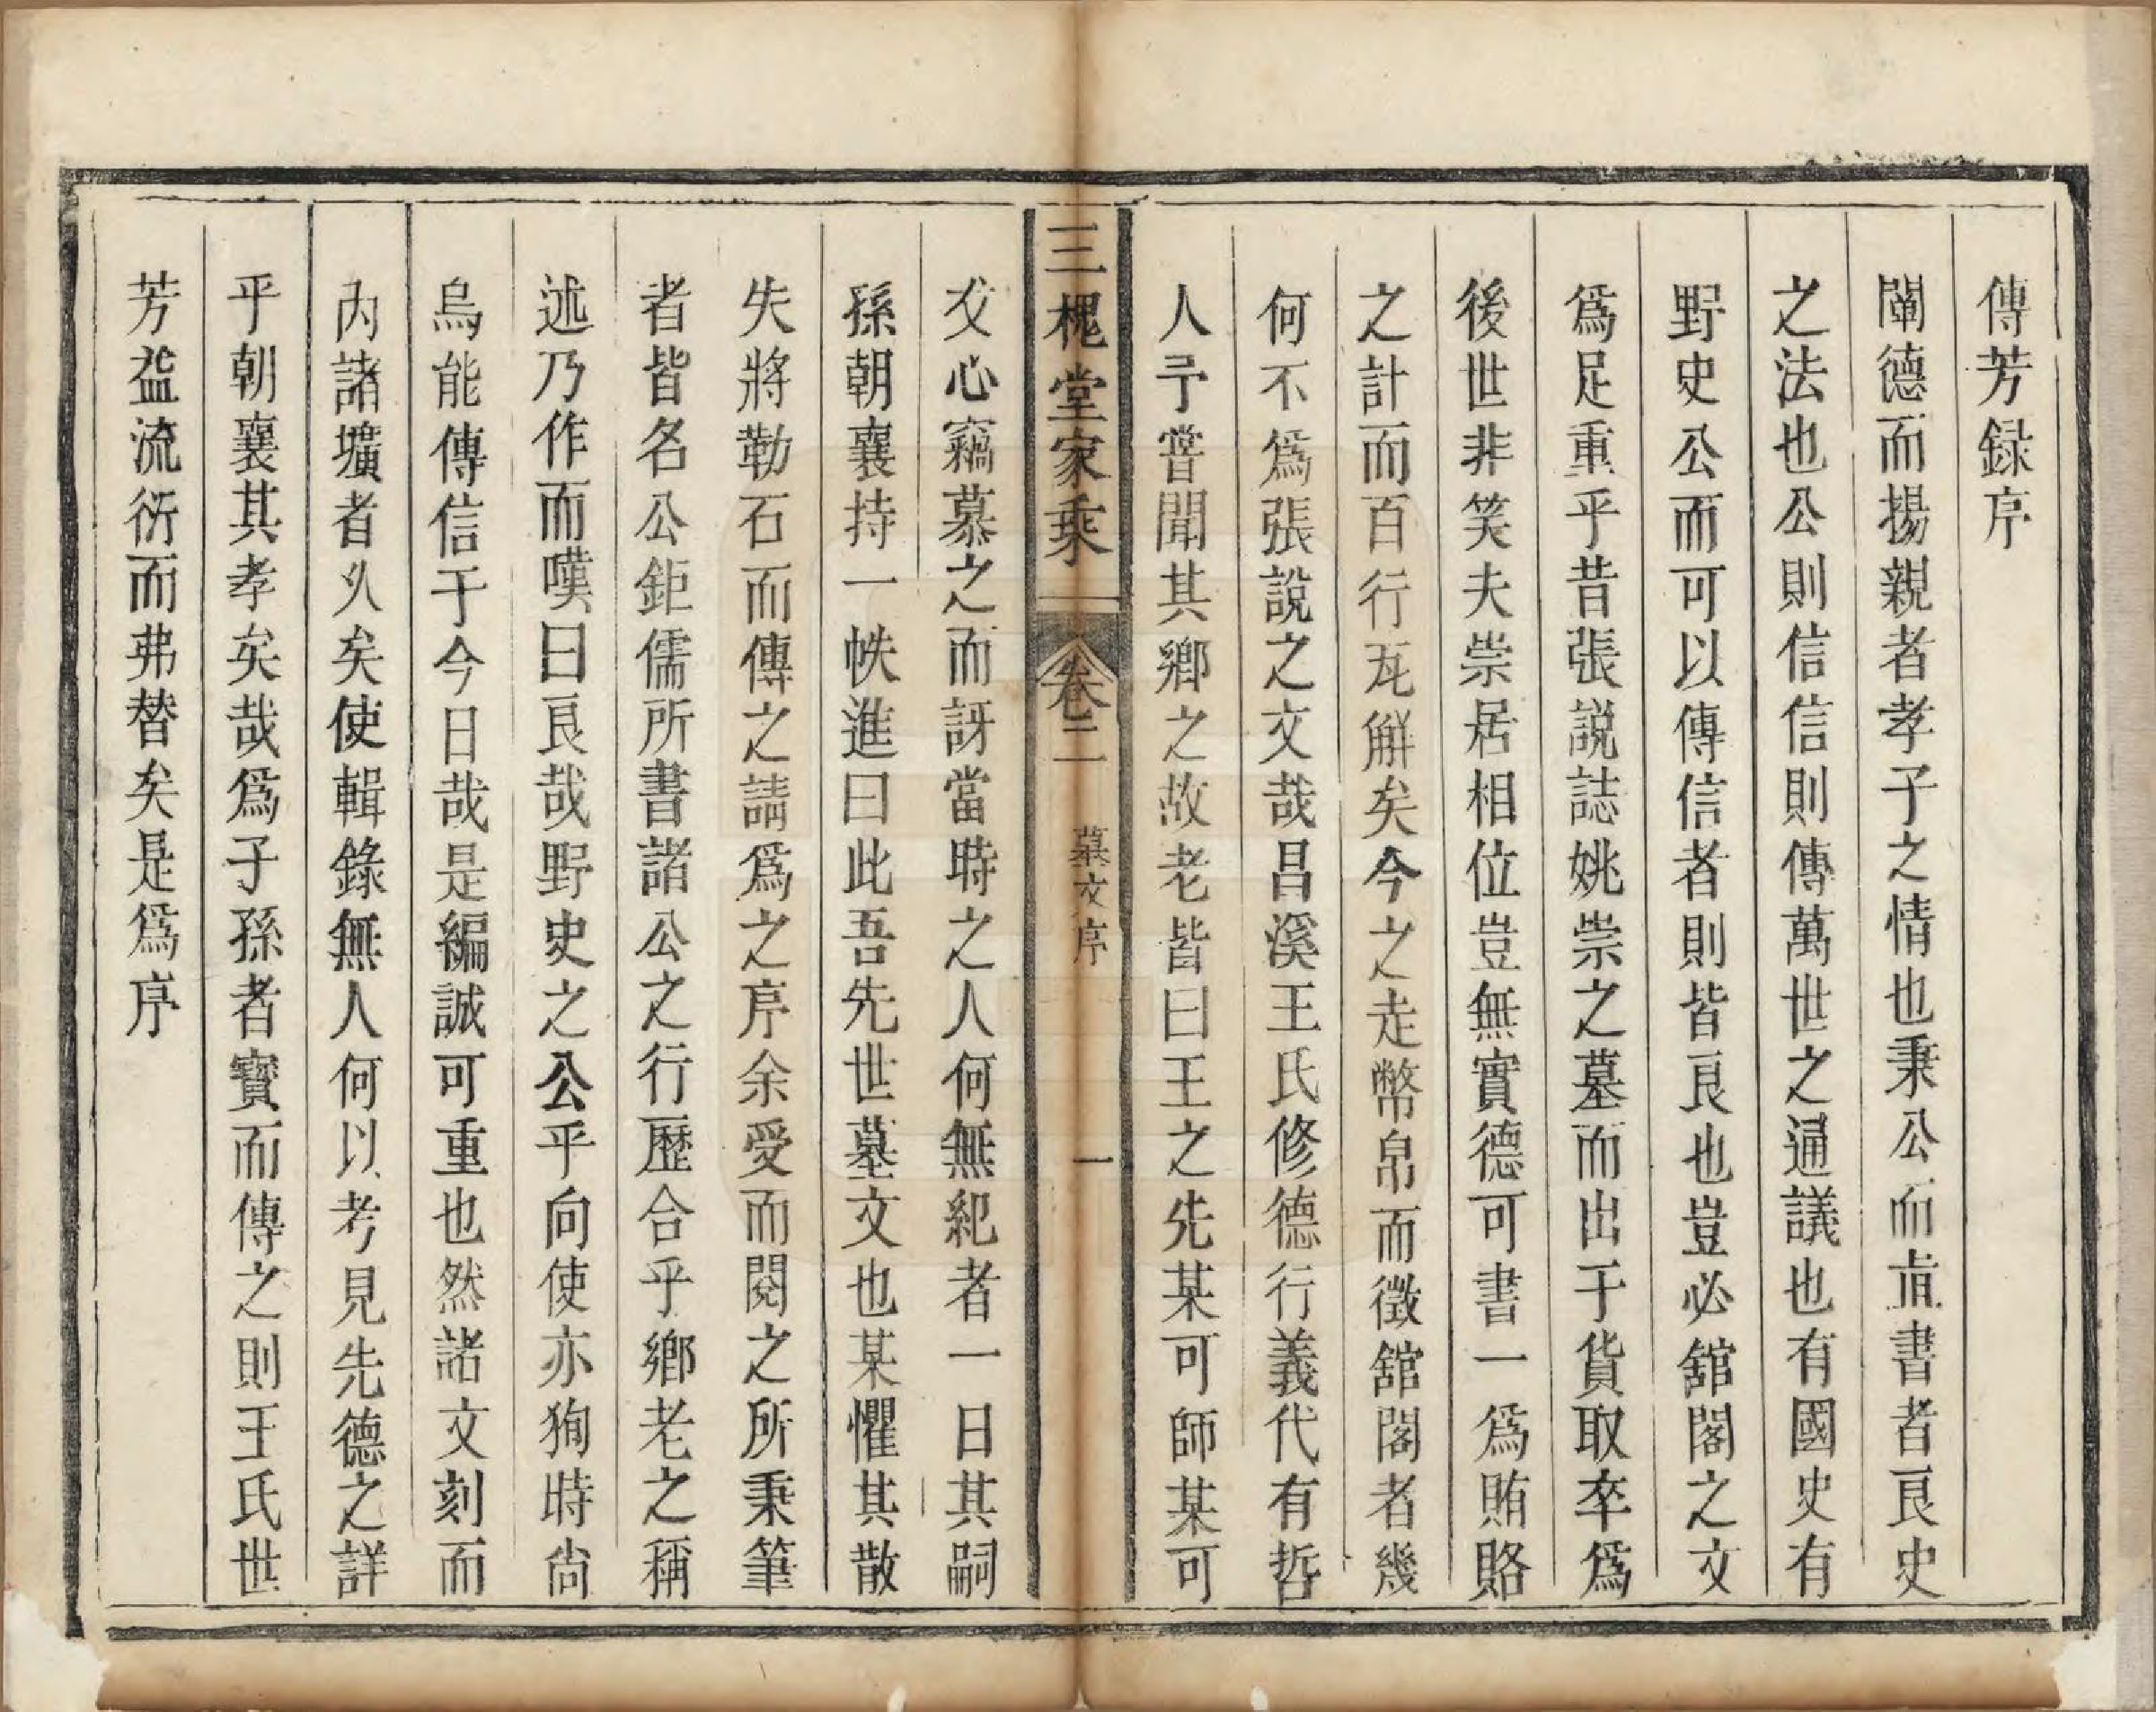 傳芳録序
闡德而揚親者孝子之情也秉公而直書者良史
之法也公則信信則傳萬世之通議也有國史有
野史公而可以傳信者則皆良也豈必舘閣之文
爲足重乎昔張説誌姚崇之墓而出于貨取卒爲
後世非笑夫崇居相位豈無實德可書一爲賄賂
之計而百行瓦觧矣今之走幣帛而徵舘閣者幾
何不爲張說之文哉昌溪王氏修德行義代有哲
人予嘗聞其鄉之故老皆曰王之先某可師某可
三槐堂家乘
卷二
墓文序
一
父心竊慕之而訝當時之人何無紀者一日其嗣
孫朝襄持一帙進曰此吾先世墓文也某懼其散
失將勒石而傳之請爲之序余受而閱之所秉筆
者皆名公鉅儒所書諸公之行歷合乎鄉老之稱
述乃作而嘆曰良哉野史之公乎向使亦狥時尚
烏能傳信于今日哉是編誠可重也然諸文刻而
内諸壙者乆矣使輯錄無人何以考見先德之詳
乎朝襄其孝矣哉爲子孫者寶而傳之則王氏世
芳益流衍而弗替矣是爲序